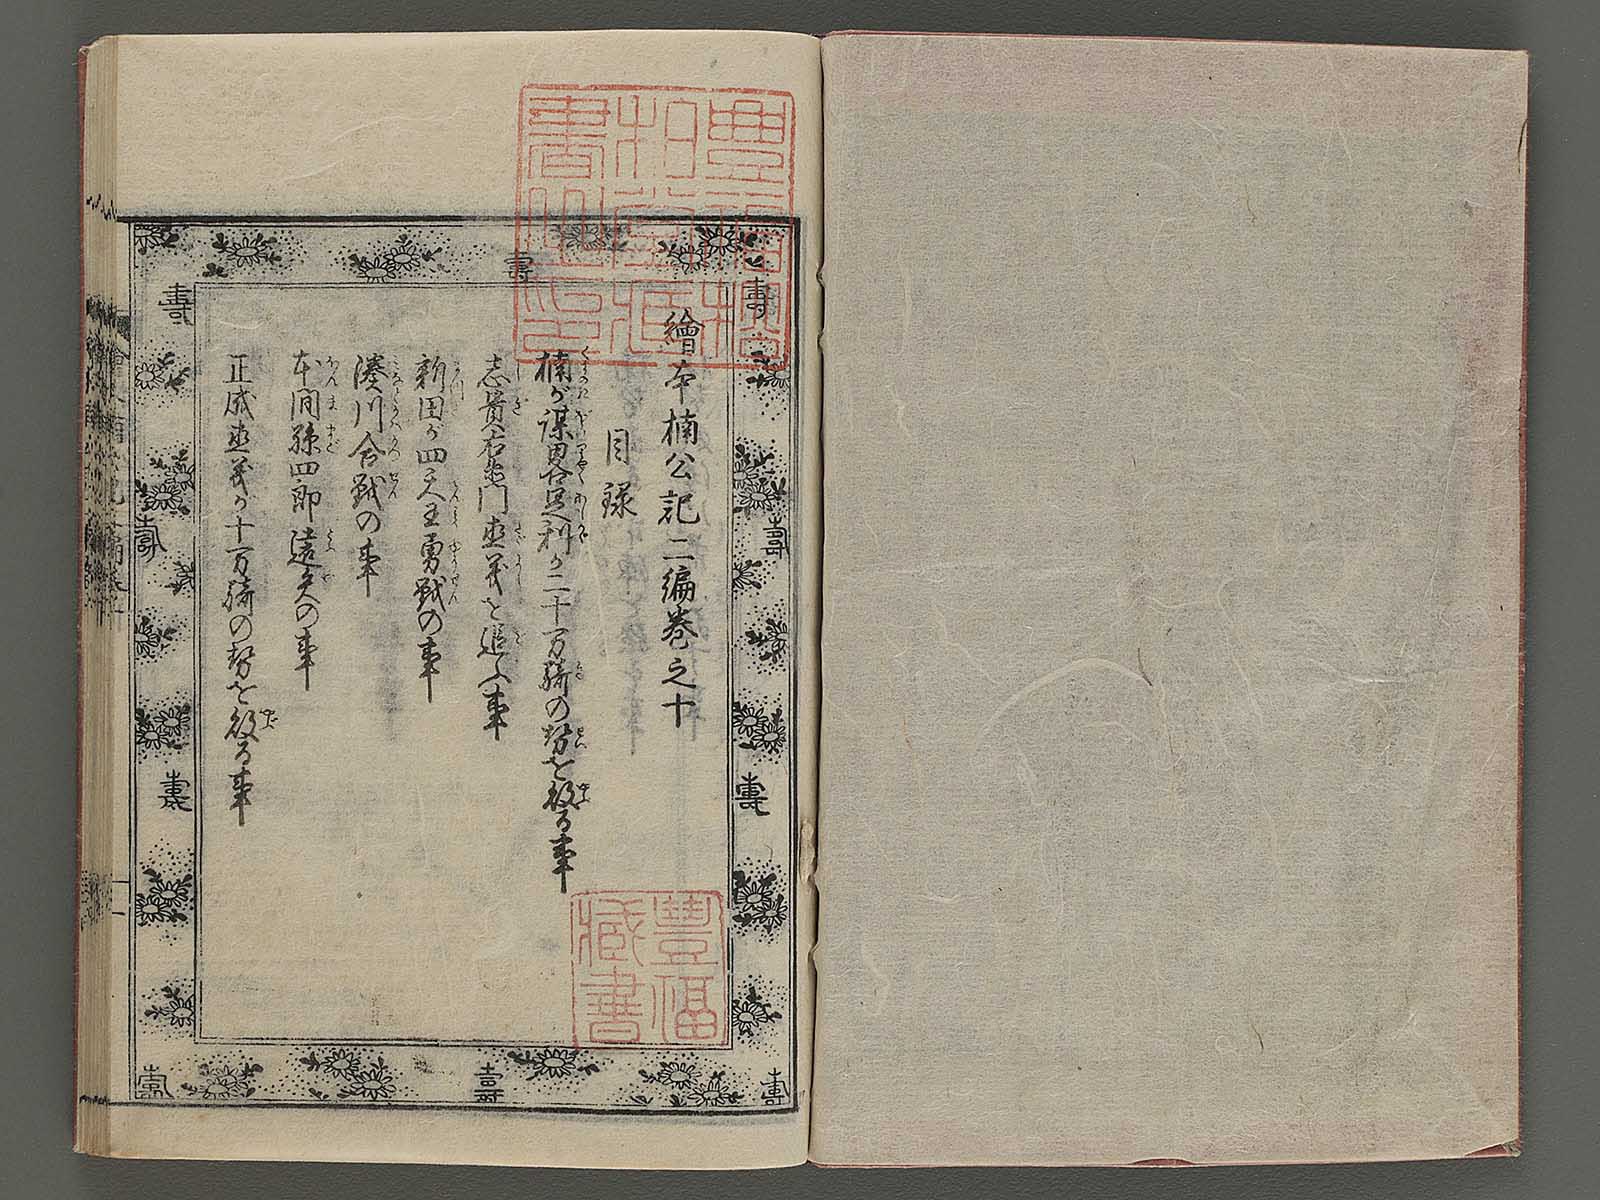 繪本楠公記二編巻之十
目録
楠が謀畧足利が二十万騎の勢を破る事
志貴右衛門直義を追ふ事
新田が四天王勇戦の事
湊川合戦の事
本間孫四郎遠矢の事
正成直義が十万騎の勢を破る事
豐福
藏書